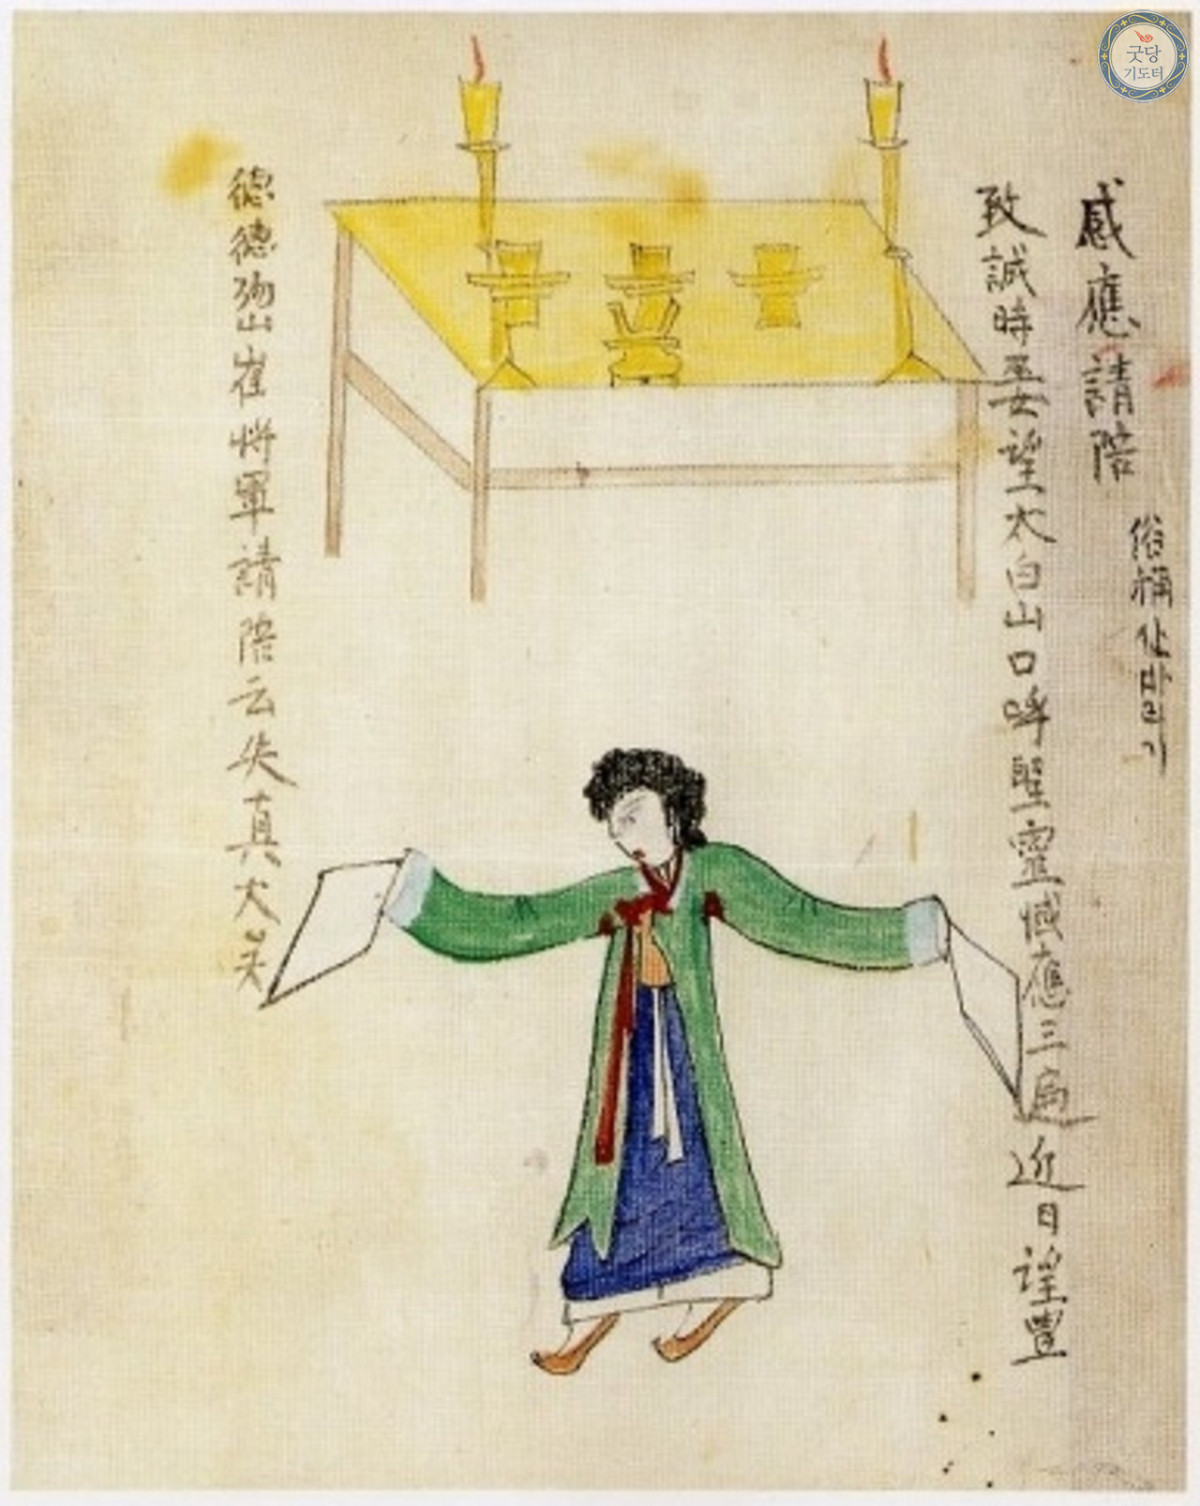 굿당
기도터
感應請陪 俗稱산바리기
致誠時巫女望太白山口呼聖靈感應三遍近日謂豊
德德物山崔將軍請陪云失真大矣